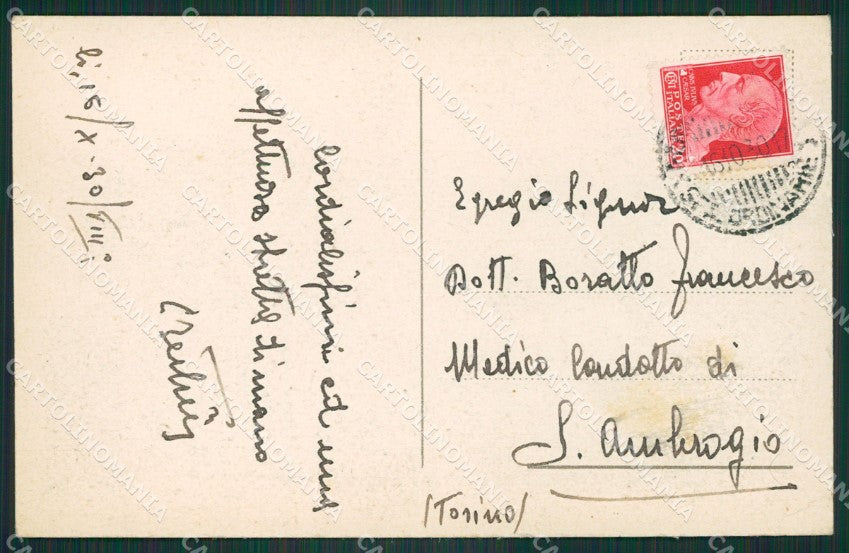 li, 15/X-30/VIII°
Cordialissimi ed una
affettuosa stretta di mano
Egregio Signor
Dott. Boratto Francesco
Medico Condotto di
S. Ambrogio
/Torino/
POSTE
ITALIANE
CARTOLINOMANIA